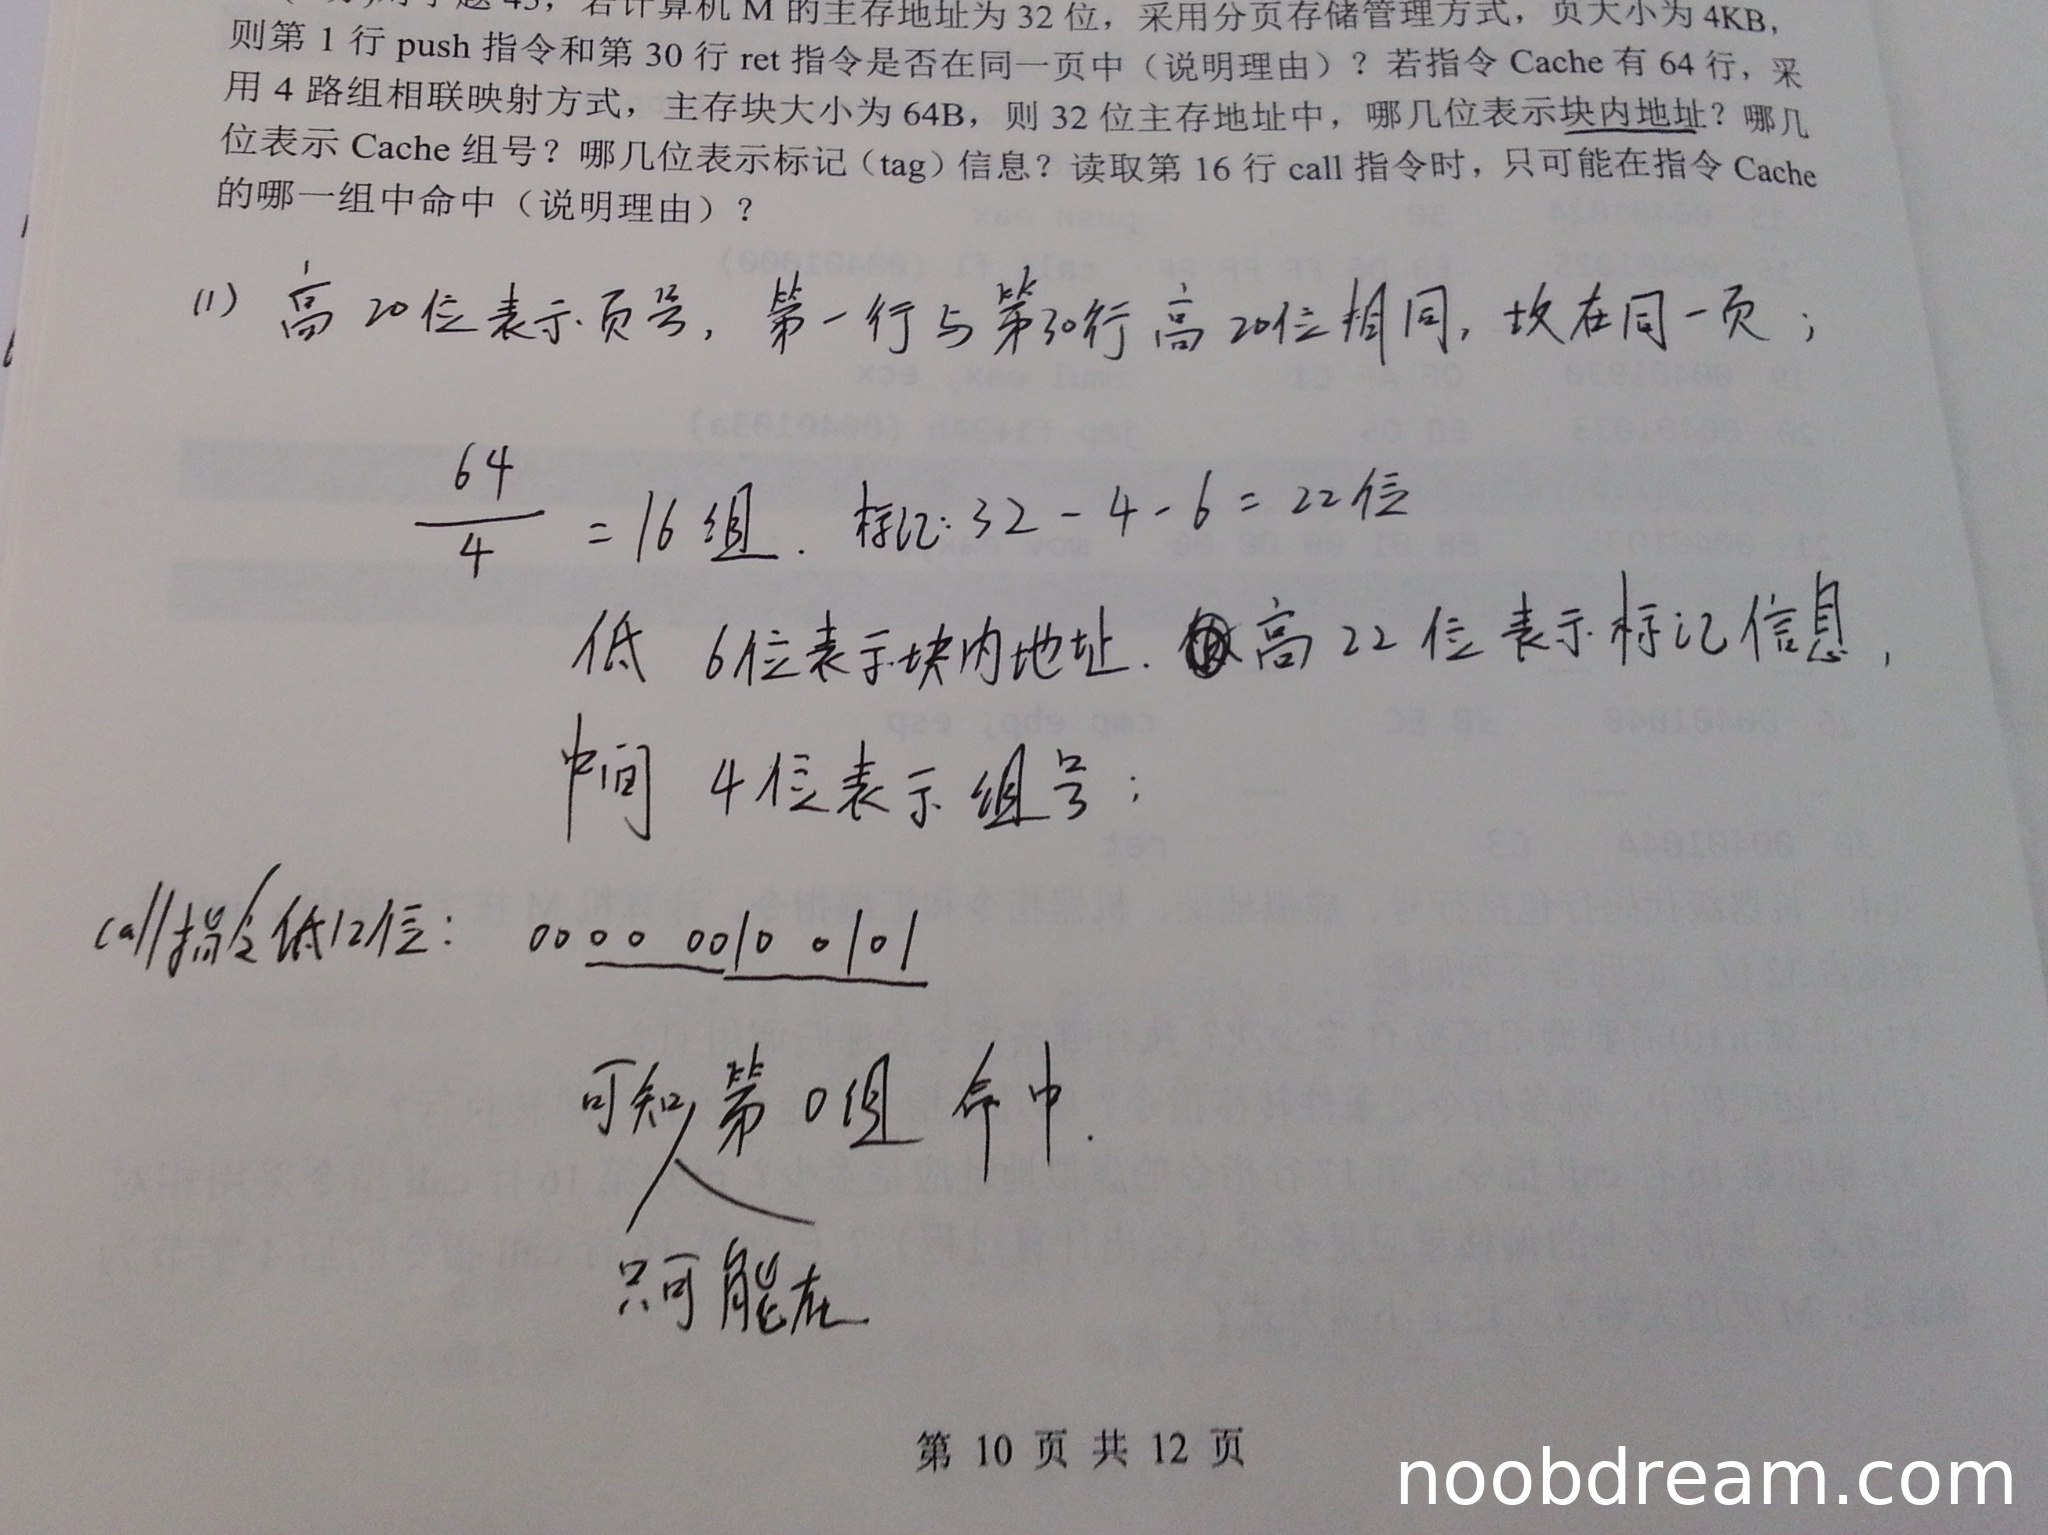 若计算机 M 的主存地址为 32 位，采用分页存储管理方式，页大小为 4KB，
则第 1 行 push 指令和第 30 行 ret 指令是否在同一页中（说明理由）？若指令 Cache 有 64 行，采
用 4 路组相联映射方式，主存块大小为 64B，则 32 位主存地址中，哪几位表示块内地址？哪几
位表示 Cache 组号？哪几位表示标记（tag）信息？读取第 16 行 call 指令时，只可能在指令 Cache
的哪一组中命中（说明理由）？
(1) 高20位表示页号，第一行与第30行高20位相同，故在同一页；
64
4 = 16组. 标记: 32 - 4 - 6 = 22位
低 6位表示块内地址. 高22位表示标记信息，
中间 4位表示组号；
call指令低12位: 0000 0010 0101
可知第0组命中.
只可能在
第 10 页 共 12 页
noobdream.com